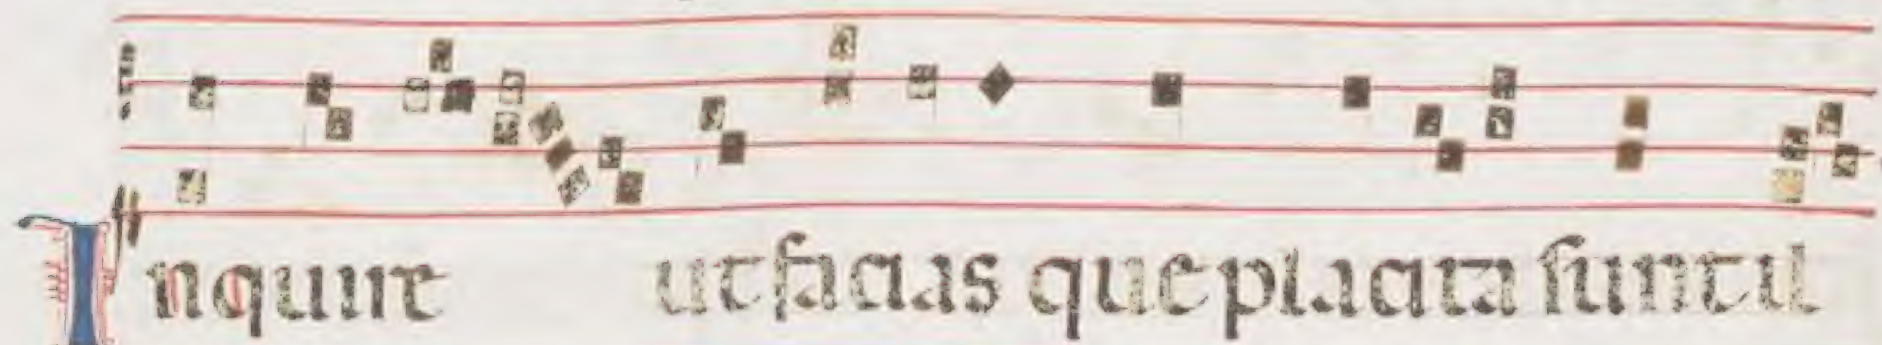 Inquire ut facias que placita sunt il